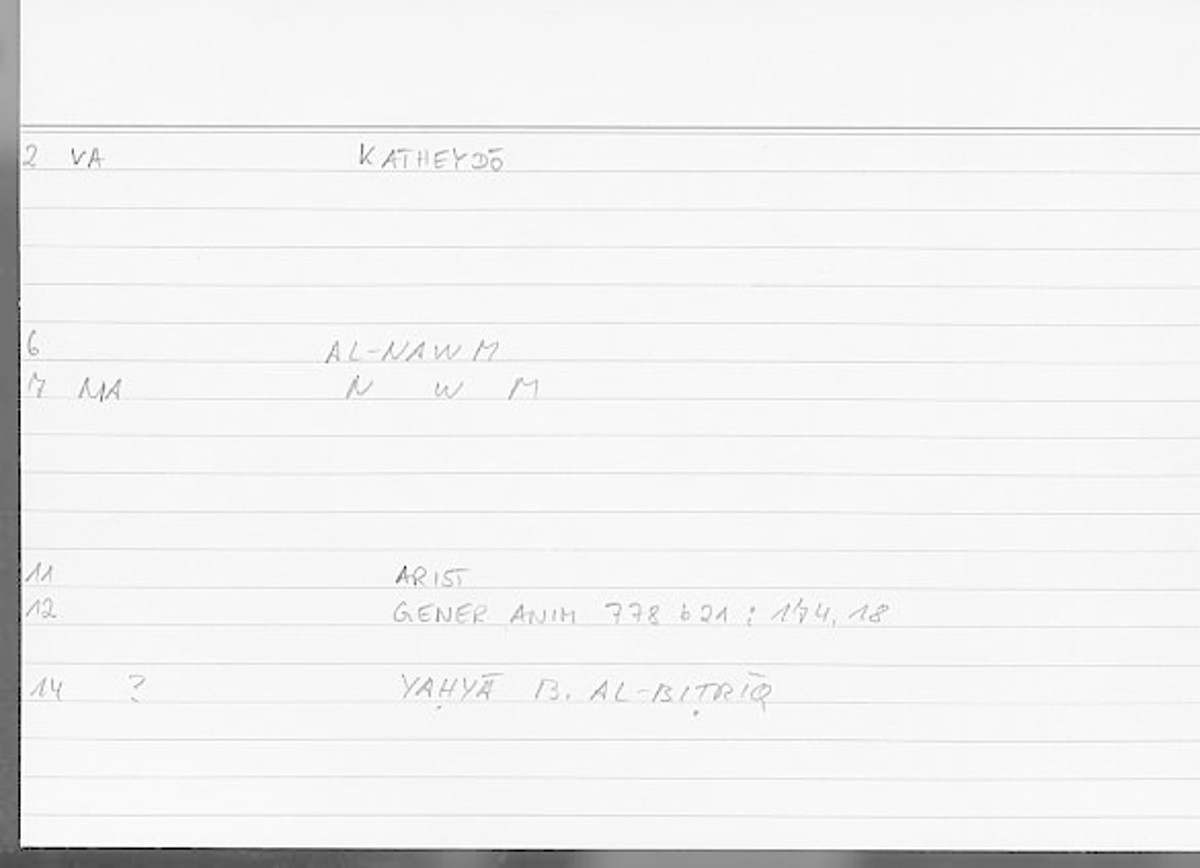 2 VA KATHEYDŌ
6 AL-NAWM
7 MA N W M
11 ARIST
12 GENER ANIM 778 b 21 ; 174, 18
14 ? YAḤYĀ B. AL-BIṬRĪQ